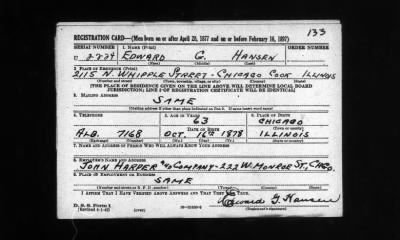 133
REGISTRATION CARD—(Men born on or after April 28, 1877 and on or before February 16, 1897)
SERIAL NUMBER 1. NAME (Print) ORDER NUMBER
U 2224 EDWARD G. HANSEN
2. PLACE OF RESIDENCE (Print)
2115 N. WHIPPLE STREET - CHICAGO COOK ILLINOIS
(Number and street) (Town, township, village, or city) (County) (State)
[THE PLACE OF RESIDENCE GIVEN ON THE LINE ABOVE WILL DETERMINE LOCAL BOARD
JURISDICTION; LINE 2 OF REGISTRATION CERTIFICATE WILL BE IDENTICAL]
3. MAILING ADDRESS
SAME
[Mailing address if other than place indicated on line 2. If same insert word same]
4. TELEPHONE 5. AGE IN YEARS 6. PLACE OF BIRTH
63 CHICAGO
DATE OF BIRTH (Town or county)
ALB. 7168 OCT. 16TH 1878 ILLINOIS
(Exchange) (Number) (Mo.) (Day) (Yr.) (State or country)
7. NAME AND ADDRESS OF PERSON WHO WILL ALWAYS KNOW YOUR ADDRESS
8. EMPLOYER'S NAME AND ADDRESS
JOHN HARPER AND COMPANY - 222 W. MONROE ST., CHGO.
9. PLACE OF EMPLOYMENT OR BUSINESS
SAME
(Number and street or R. F. D. number) (Town) (County) (State)
I AFFIRM THAT I HAVE VERIFIED ABOVE ANSWERS AND THAT THEY ARE TRUE.
D. S. S. Form 1
(Revised 4-1-42) Edward G. Hansen